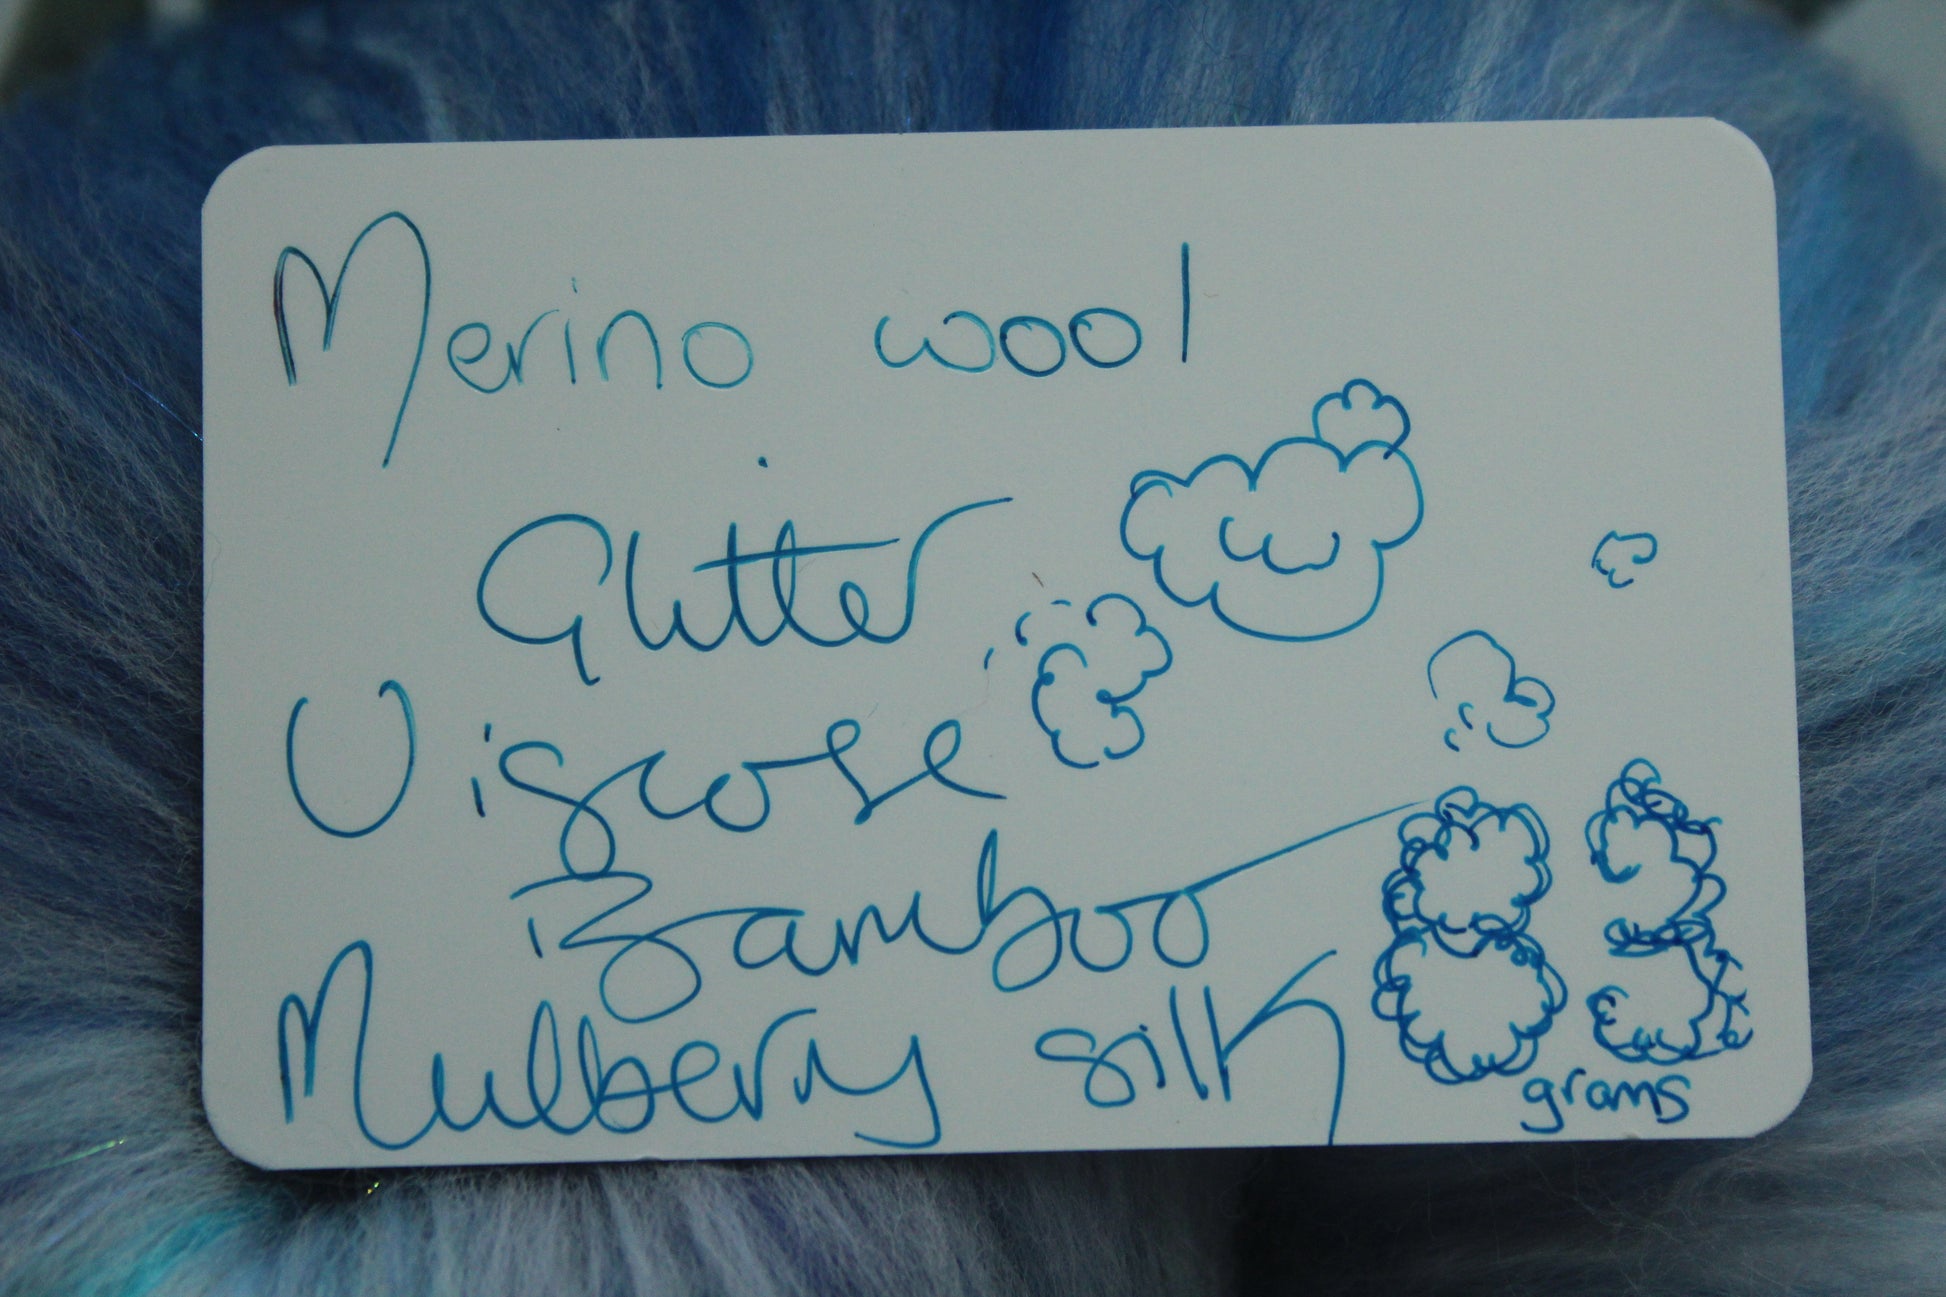 Merino wool
Glitter
Viscose
Bamboo
Mulberry silk
83
grams